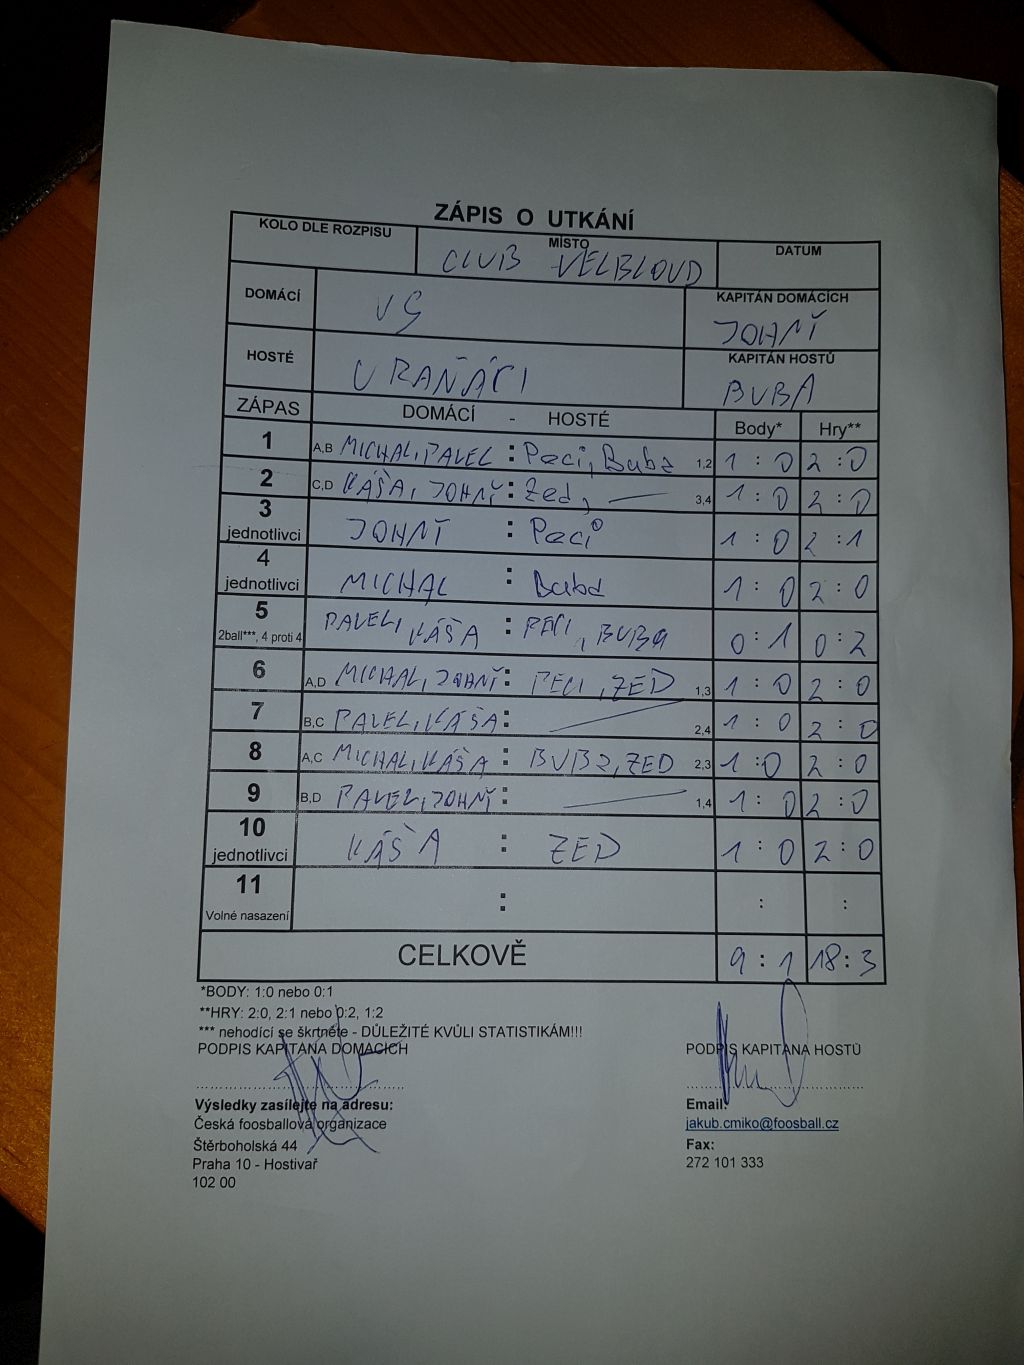 ZÁPIS O UTKÁNÍ
KOLO DLE ROZPISU MÍSTO DATUM
CLUB VELBLOUD
DOMÁCÍ VG KAPITÁN DOMÁCÍCH
JOHNŤ
HOSTÉ URAŇÁCI KAPITÁN HOSTŮ
BUBA
ZÁPAS DOMÁCÍ - HOSTÉ Body* Hry**
1 A,B MICHAL, PAVEL : Peci, Buba 1,2 1 : 0 2 : 0
2 C,D KÁŠA, JOHNŤ : Zed, — 3,4 1 : 0 2 : 0
3 jednotlivci JOHNŤ : Peci 1 : 0 2 : 1
4 jednotlivci MICHAL : Buba 1 : 0 2 : 0
5 2ball***, 4 proti 4 PAVEL, KÁŠA : PECI, BUBA 0 : 1 0 : 2
6 A,D MICHAL, JOHNŤ : PECI, ZED 1,3 1 : 0 2 : 0
7 B,C PAVEL, KÁŠA : — 2,4 1 : 0 2 : 0
8 A,C MICHAL, KÁŠA : BUBA, ZED 2,3 1 : 0 2 : 0
9 B,D PAVEL, JOHNŤ : — 1,4 1 : 0 2 : 0
10 jednotlivci KÁŠA : ZED 1 : 0 2 : 0
11 Volné nasazení : : :
CELKOVĚ 9 : 1 18 : 3
*BODY: 1:0 nebo 0:1
**HRY: 2:0, 2:1 nebo 0:2, 1:2
*** nehodící se škrtněte - DŮLEŽITÉ KVŮLI STATISTIKÁM!!!
PODPIS KAPITÁNA DOMÁCÍCH PODPIS KAPITÁNA HOSTŮ
Výsledky zasílejte na adresu: Email:
Česká foosballová organizace jakub.cmiko@foosball.cz
Štěrboholská 44 Fax:
Praha 10 - Hostivař 272 101 333
102 00